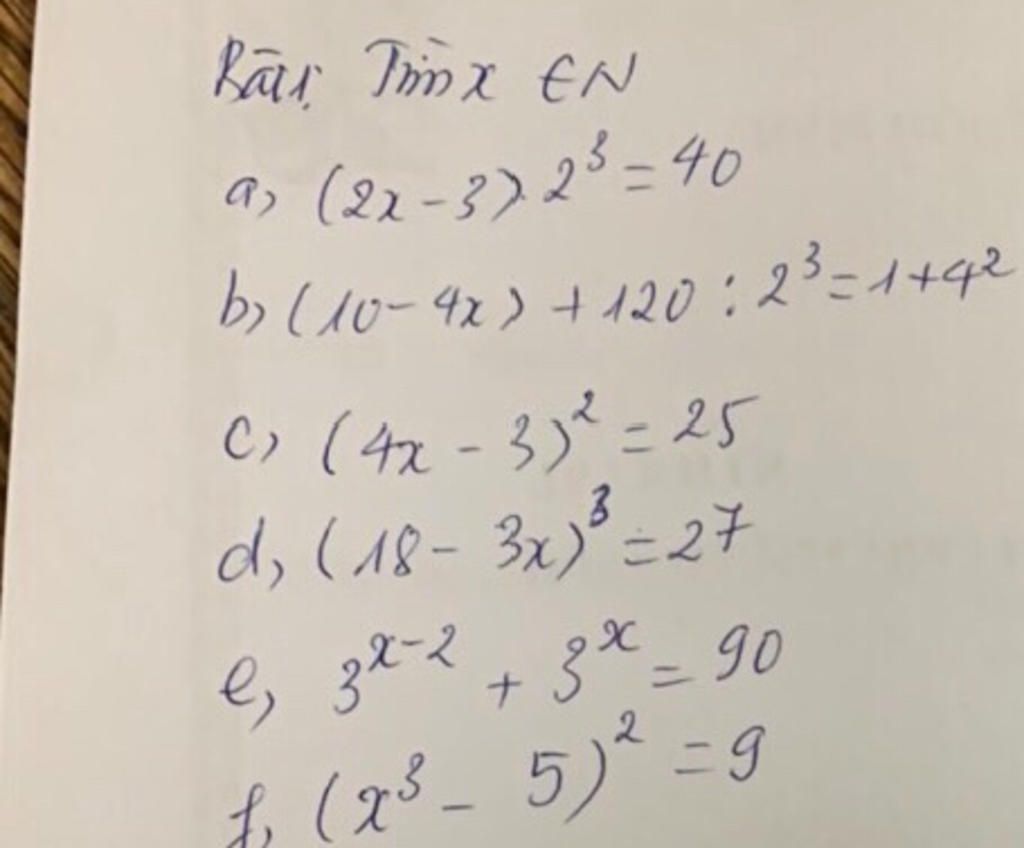 Bài 1: Tìm x ∈ N
a, (2x - 3). 2³ = 40
b, (10 - 4x) + 120 : 2³ = 1 + 4²
c, (4x - 3)² = 25
d, (18 - 3x)³ = 27
e, 3ˣ⁻² + 3ˣ = 90
f, (x³ - 5)² = 9